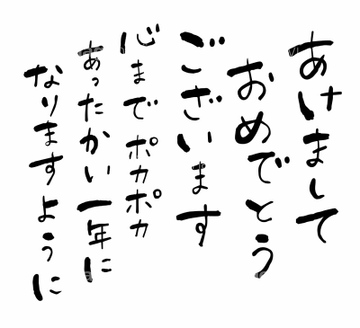 あけまして
おめでとう
ございます
心までポカポカ
あったかい一年に
なりますように